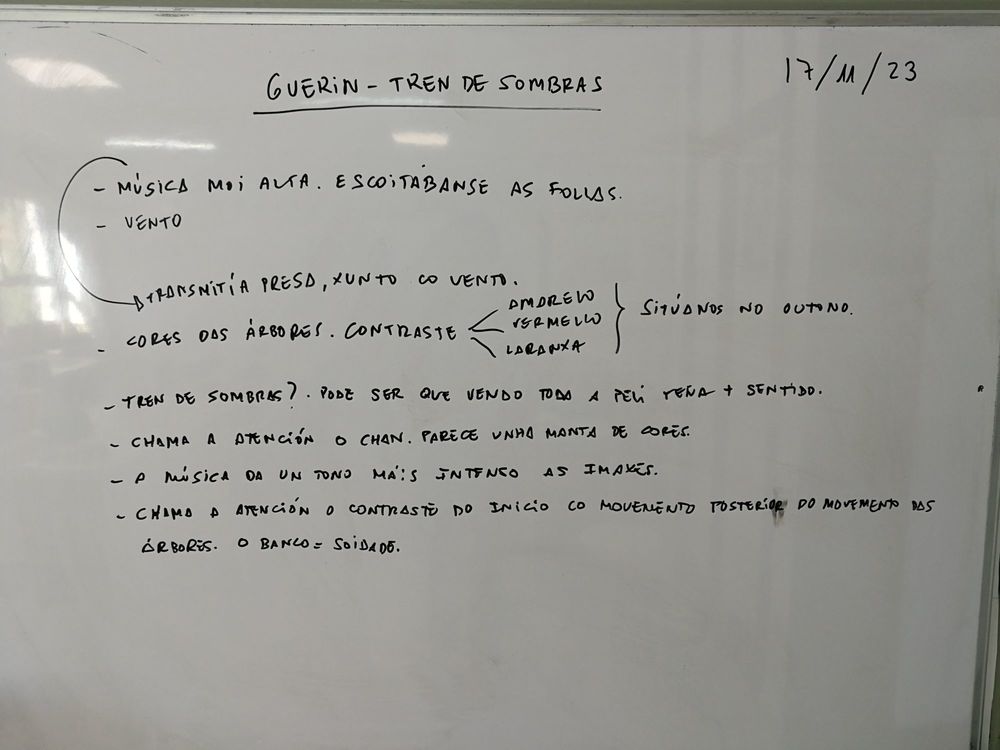 GUERIN - TREN DE SOMBRAS
17/11/23
- MÚSICA MOI ALTA. ESCOITÁBANSE AS FOLLAS.
- VENTO
TRANSMITÍA PRESA, XUNTO CO VENTO.
- CORES DAS ÁRBORES. CONTRASTE
AMARELO
VERMELLO
LARANXA
SITÚANOS NO OUTONO.
- TREN DE SOMBRAS?. PODE SER QUE VENDO TODA A PELI TEÑA + SENTIDO.
- CHAMA A ATENCIÓN O CHAN. PARECE UNHA MANTA DE CORES.
- A MÚSICA DA UN TONO MÁIS INTENSO AS IMAXES.
- CHAMA A ATENCIÓN O CONTRASTE DO INICIO CO MOVEMENTO POSTERIOR DO MOVEMENTO DAS
ÁRBORES. O BANCO = SOIDADE.